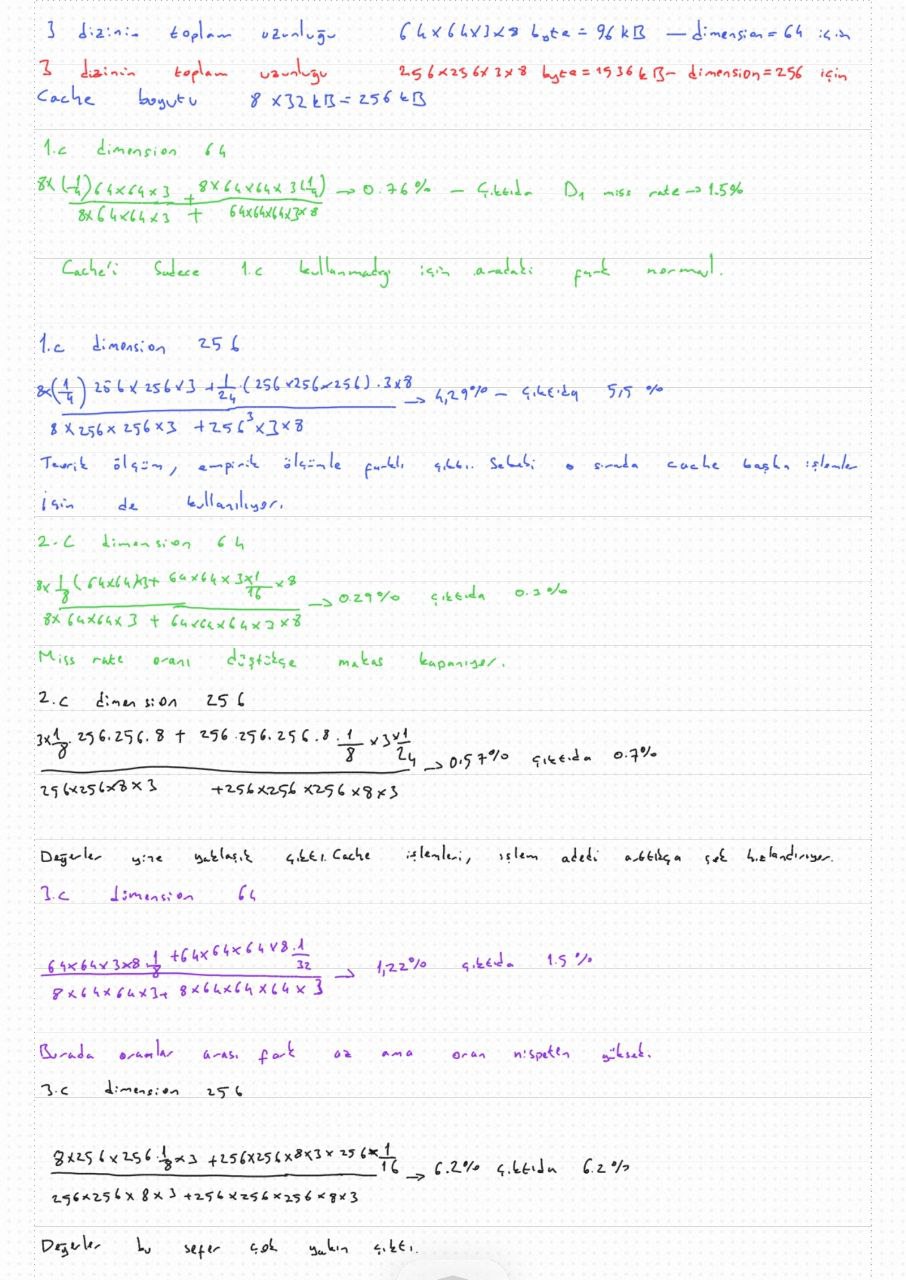 3 dizinin toplam uzunluğu 64×64×3×8 byte = 96 kB — dimension = 64 için
3 dizinin toplam uzunluğu 256×256×3×8 byte = 1536 kB – dimension = 256 için
Cache boyutu 8 × 32 kB = 256 kB
1.c dimension 64
8×(1/4)64×64×3 + 8×64×64×3(1/4) / 8×64×64×3 + 64×64×64×3×8 → 0.76% – Çıktıda D1 miss rate → 1.5%
Cache'i Sadece 1.c kullanmadığı için aradaki fark normal.
1.c dimension 256
8×(1/4)256×256×3 + 1/24.(256×256×256).3×8 / 8×256×256×3 + 256³×3×8 → 4,29% – çıktıda 5,5 %
Teorik ölçüm, empirik ölçümle farklı çıktı. Sebebi o sırada cache başka işlemler
için de kullanılıyor.
2.C dimension 64
8×1/8(64×64)×3+ 64×64×3×1/16×8 / 8×64×64×3 + 64×64×64×3×8 → 0.29% çıktıda 0.3%
Miss rate oranı düştükçe makas kapanıyor.
2.c dimension 256
3×1/8.256.256.8 + 256.256.256.8.1/8×3×1/24 / 256×256×8×3 +256×256×256×8×3 → 0,57% çıktıda 0.7%
Değerler yine yaklaşık çıktı. Cache işlemleri, işlem adedi arttıkça çok hızlandırıyor.
3.c dimension 64
64×64×3×8.1/8 +64×64×64×8.1/32 / 8×64×64×3+ 8×64×64×64×3 → 1,22% çıktıda 1.5%
Burada oranlar arası fark az ama oran nispeten yüksek.
3.c dimension 256
8×256×256.1/8×3 +256×256×8×3×256×1/16 / 256×256×8×3 +256×256×256×8×3 → 6.2% çıktıda 6.2%
Değerler bu sefer çok yakın çıktı.